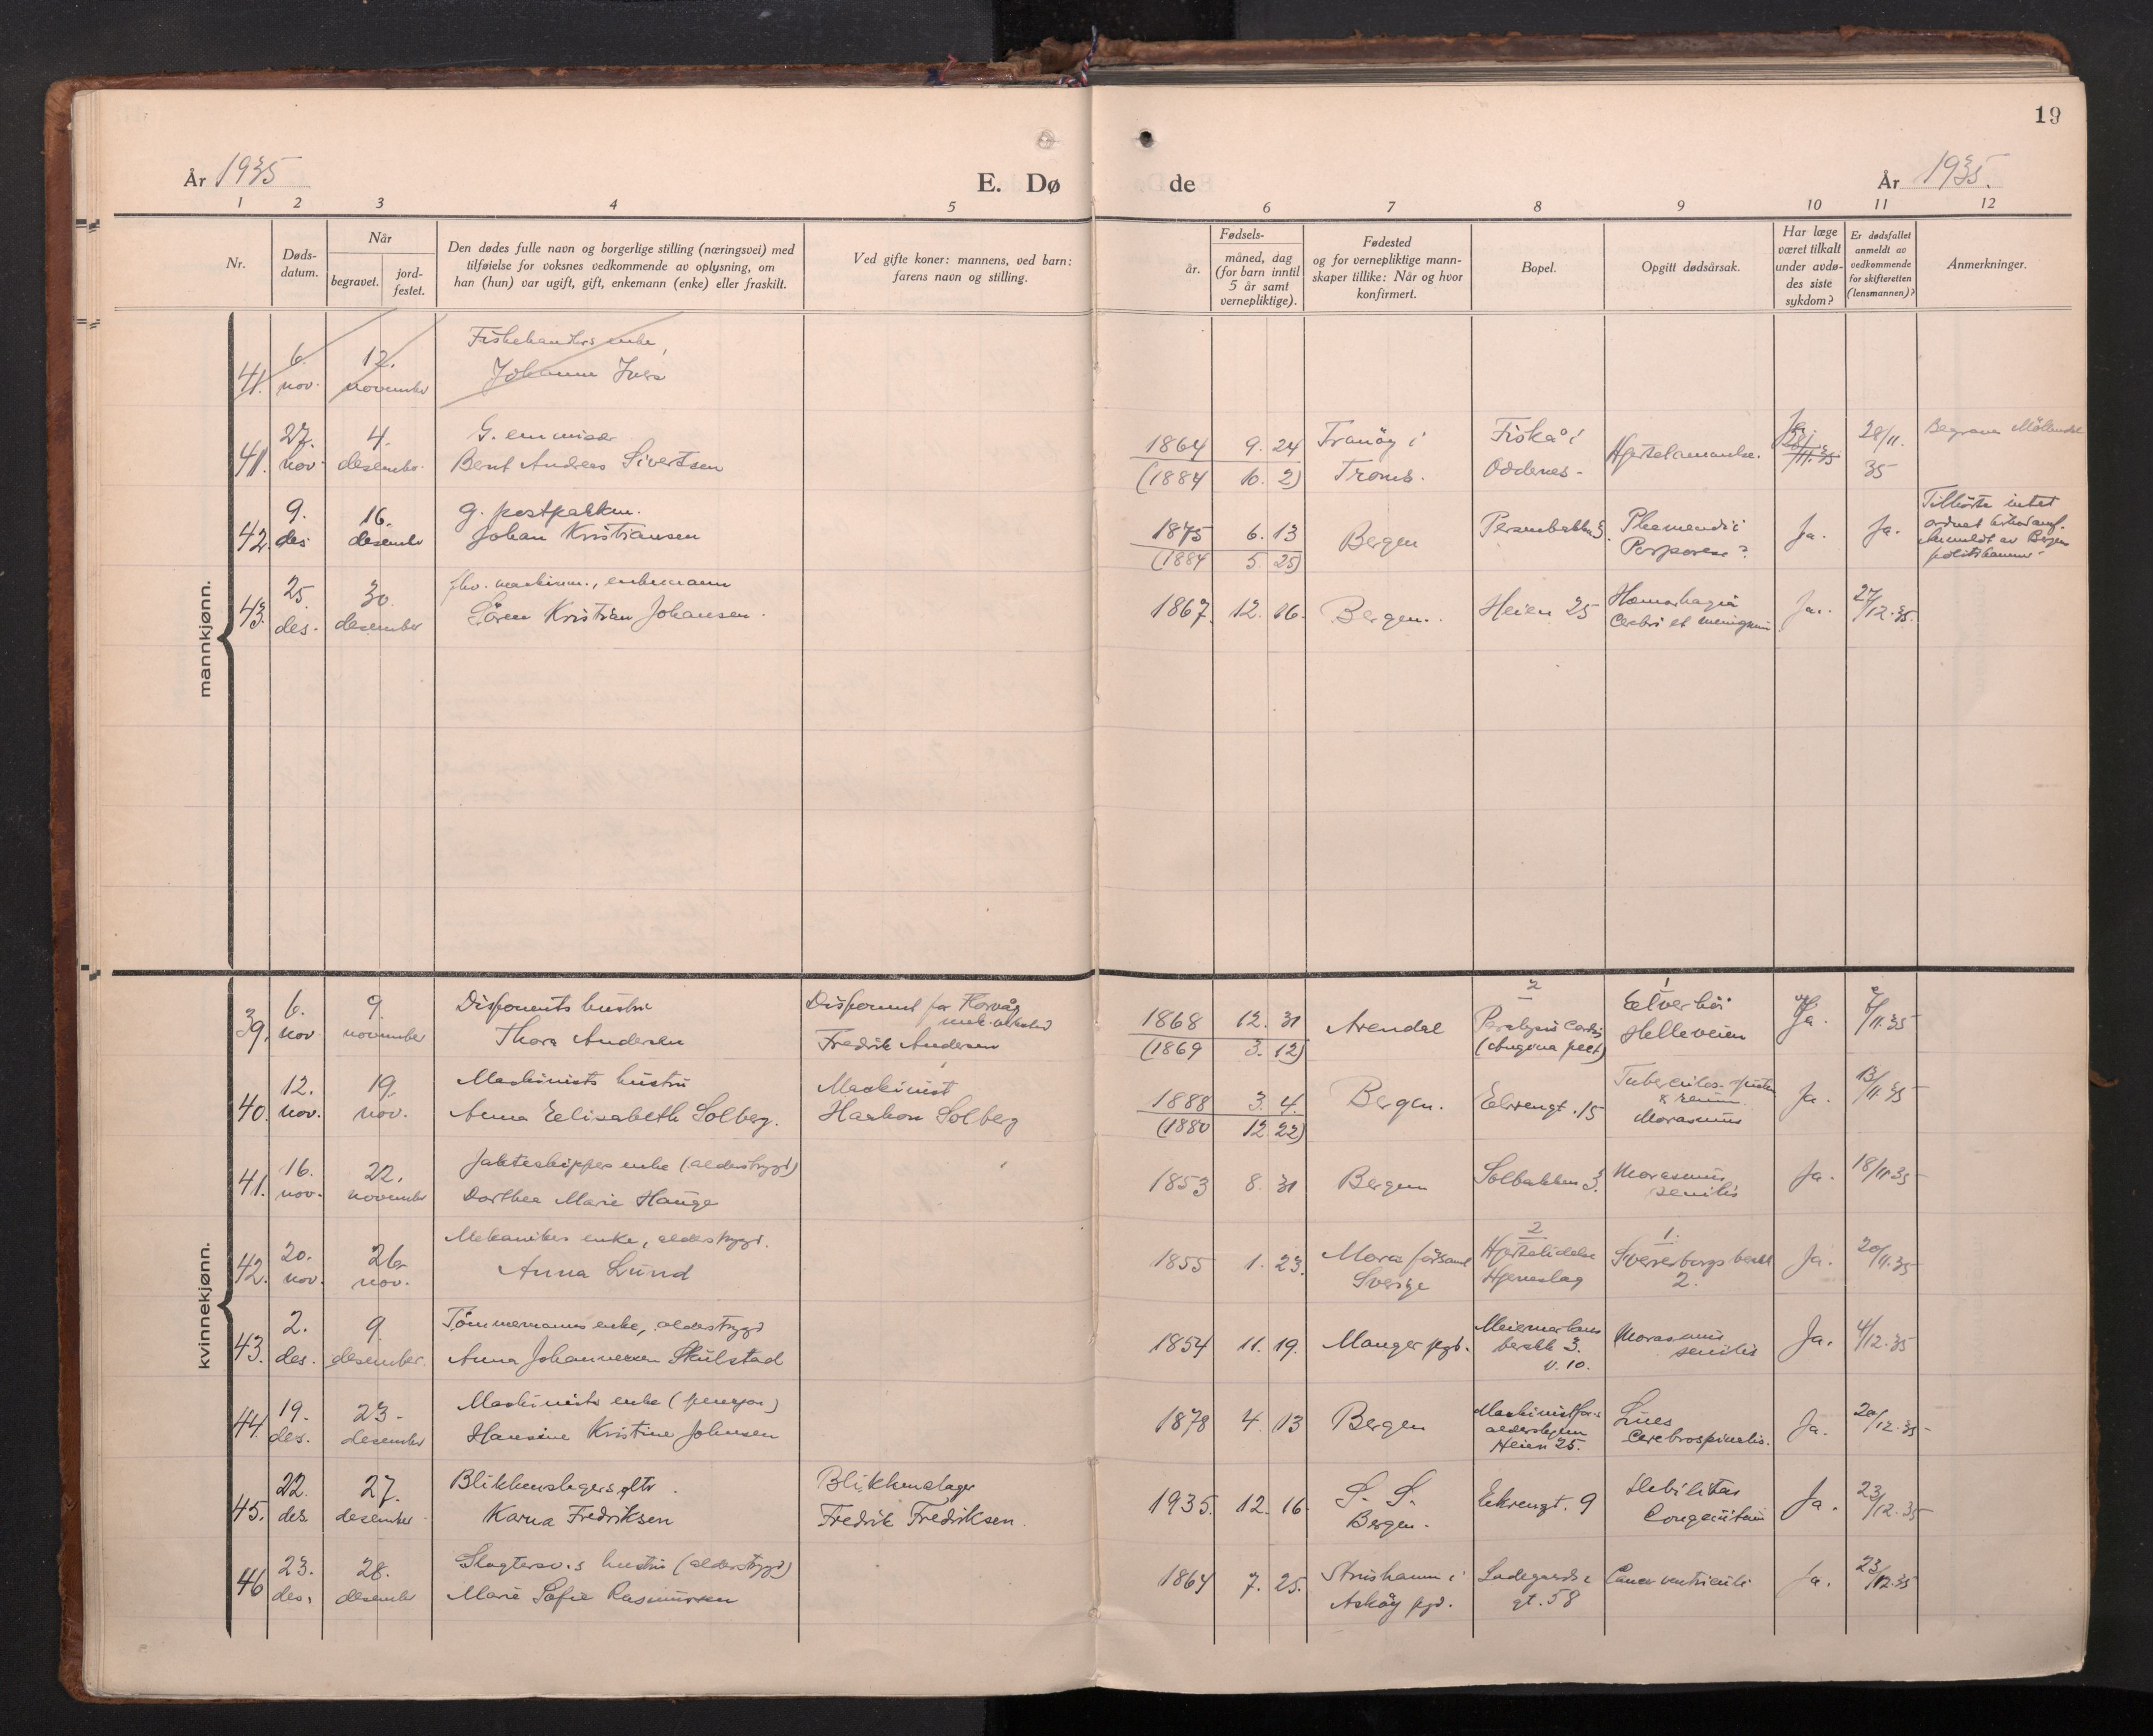 19
År 1935
E. Dø
de
År 1935.
1 2 3 4 5 6 7 8 9 10 11 12
Nr.
Døds-
datum.
Når
begravet.
jord-
festet.
Den dødes fulle navn og borgerlige stilling (næringsvei) med
tilføielse for voksnes vedkommende av oplysning, om
han (hun) var ugift, gift, enkemann (enke) eller fraskilt.
Ved gifte koner: mannens, ved barn:
farens navn og stilling.
Fødsels-
år.
måned, dag
(for barn inntil
5 år samt
vernepliktige).
Fødested
og for vernepliktige mann-
skaper tillike: Når og hvor
konfirmert.
Bopel.
Opgitt dødsårsak.
Har læge
været tilkalt
under avdø-
des siste
sykdom?
Er dødsfallet
anmeldt av
vedkommende
for skifteretten
(lensmannen)?
Anmerkninger.
mannkjønn.
6. 12. enke,
41. nov. november Johanne
27. 4. G. 1864 9. 24 Tranöy i Fiskå i Ja. 28/11. Begraves Möllendal
41. nov. desember. Bernt Andreas Sivertsen (1884 10. 2) Troms. Oddenes - 35
9. 16. g. Tilhörte intet
42. des desember Johan Kristiansen 1875 6. 13 Bergen Ja. Ja. ordnet
(1884 5. 25) Anmeldt av Bergen
25. 30. enkemann
43. des. desember Sören Kristian Johansen. 1867. 12. 16. Bergen. Heien 25 Ja. 27/12.35.
cerebri et
kvinnekjønn.
6. 9. Disponents hustru Disponent for 2 1
39. nov november Thora Andersen Fredrik Andersen 1868 12. 31 Arendal Paralysis Cordis Helleveien Ja. /11.35
(1869 3. 12) (Angina pect)
12. 19. Maskinists hustru Maskinist
40. nov. nov. Anna Eelisabeth Solberg. Haakon Solberg 1888 3. 4. Bergen. 15 Marasmus Ja. 13/11.35
(1880 12 22)
16. 22. Jakteskippers enke (alderstrygd)
41. nov. november Dorthea Marie Hauge 1853 8. 31 Bergen Solbakken 3. Marasmus Ja. 18/11 35
senilis
20. 26 Mekanikers enke, alderstrygd. 2 1.
42. nov. nov. Anna Lund 1855 1. 23. Mora församl Hjertelidelse Sverresborgs bakke Ja. 20/11.35
Sverige Hjerneslag 2.
2. 9. Tömmermanns enke, alderstrygd
43. des. desember. Anna Johannessen Skulstad 1854 11. 19. Manger pgd. bakke 3. Marasmus Ja. 4/12.35
v. 10. senilis
19. 23. Maskinists enke (pensjon)
44. des. desember Hansine Kristine Johnsen 1878 4. 13 Bergen Maskinistfor.s Lues Ja. 20/12.35
aldershjem cerebrospinalis.
Heien 25.
22. 27. Blikkenslagers dtr. Blikkenslager
45. des. desember Karna Fredriksen Fredrik Fredriksen. 1935. 12. 16. S. S. Ekrengt. 9 Debilitas Ja. 23/12.35
Bergen. Congenitam
23. 28. hustru (alderstrygd)
46 des. desember Marie Sofie Rasmussen 1864 7. 25. Strushamn i Ladegaards Cancer ventriculi Ja. 23/12.35
Asköy pgd. gt. 58